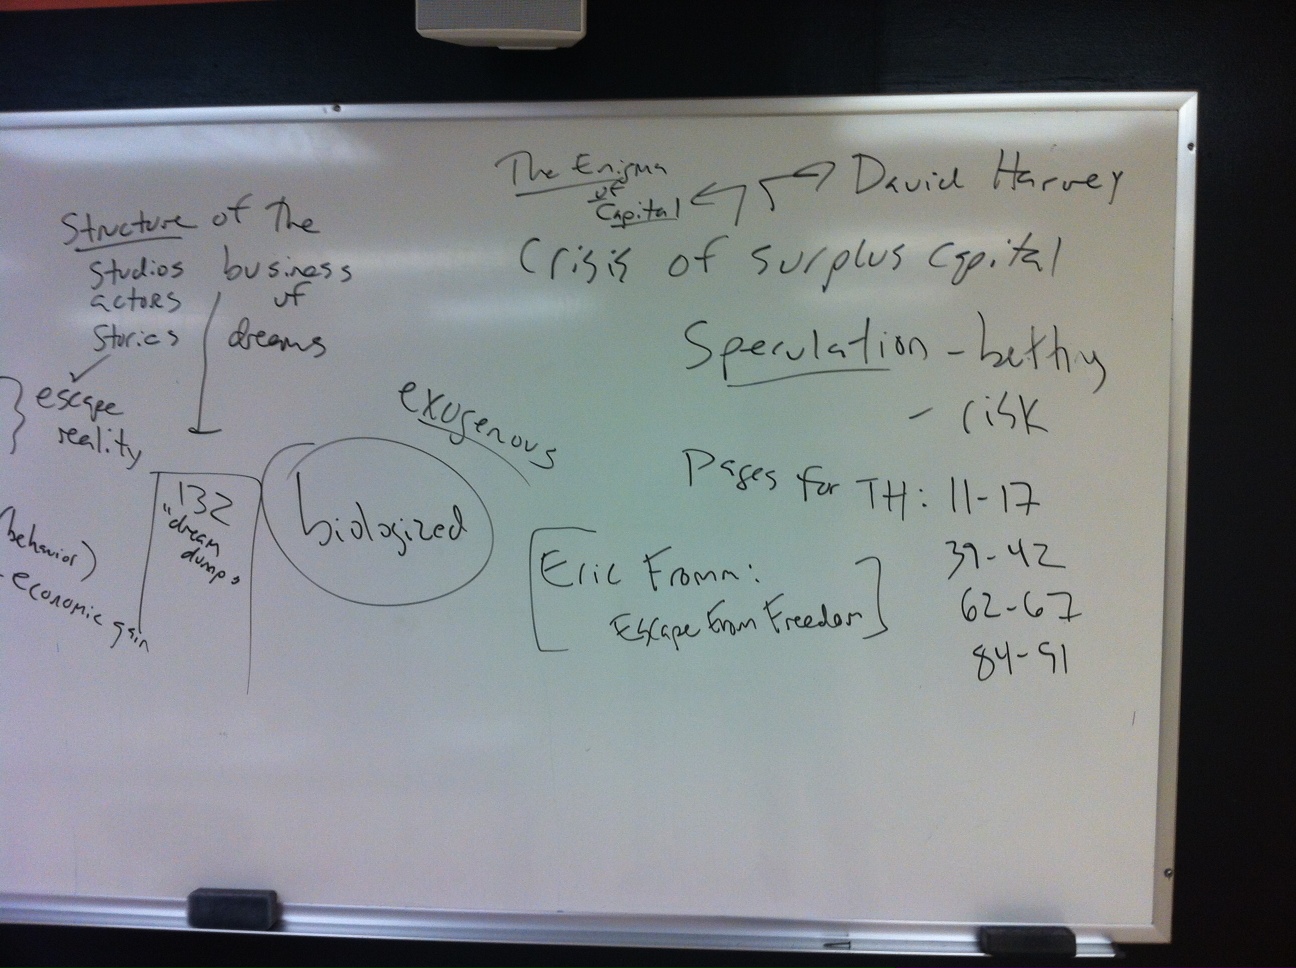 Structure of The
studios
actors
stories
business
of
dreams
escape
reality
behavior)
- economic gain
132
"dream
dump"
exogenous
biologized
The Enigma
of
Capital
David Harvey
Crisis of surplus capital
Speculation - betting
- risk
Pages for TH: 11-17
39-42
62-67
84-91
Eric Fromm:
Escape From Freedom